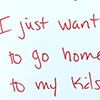 I just want
to go home
to my kids